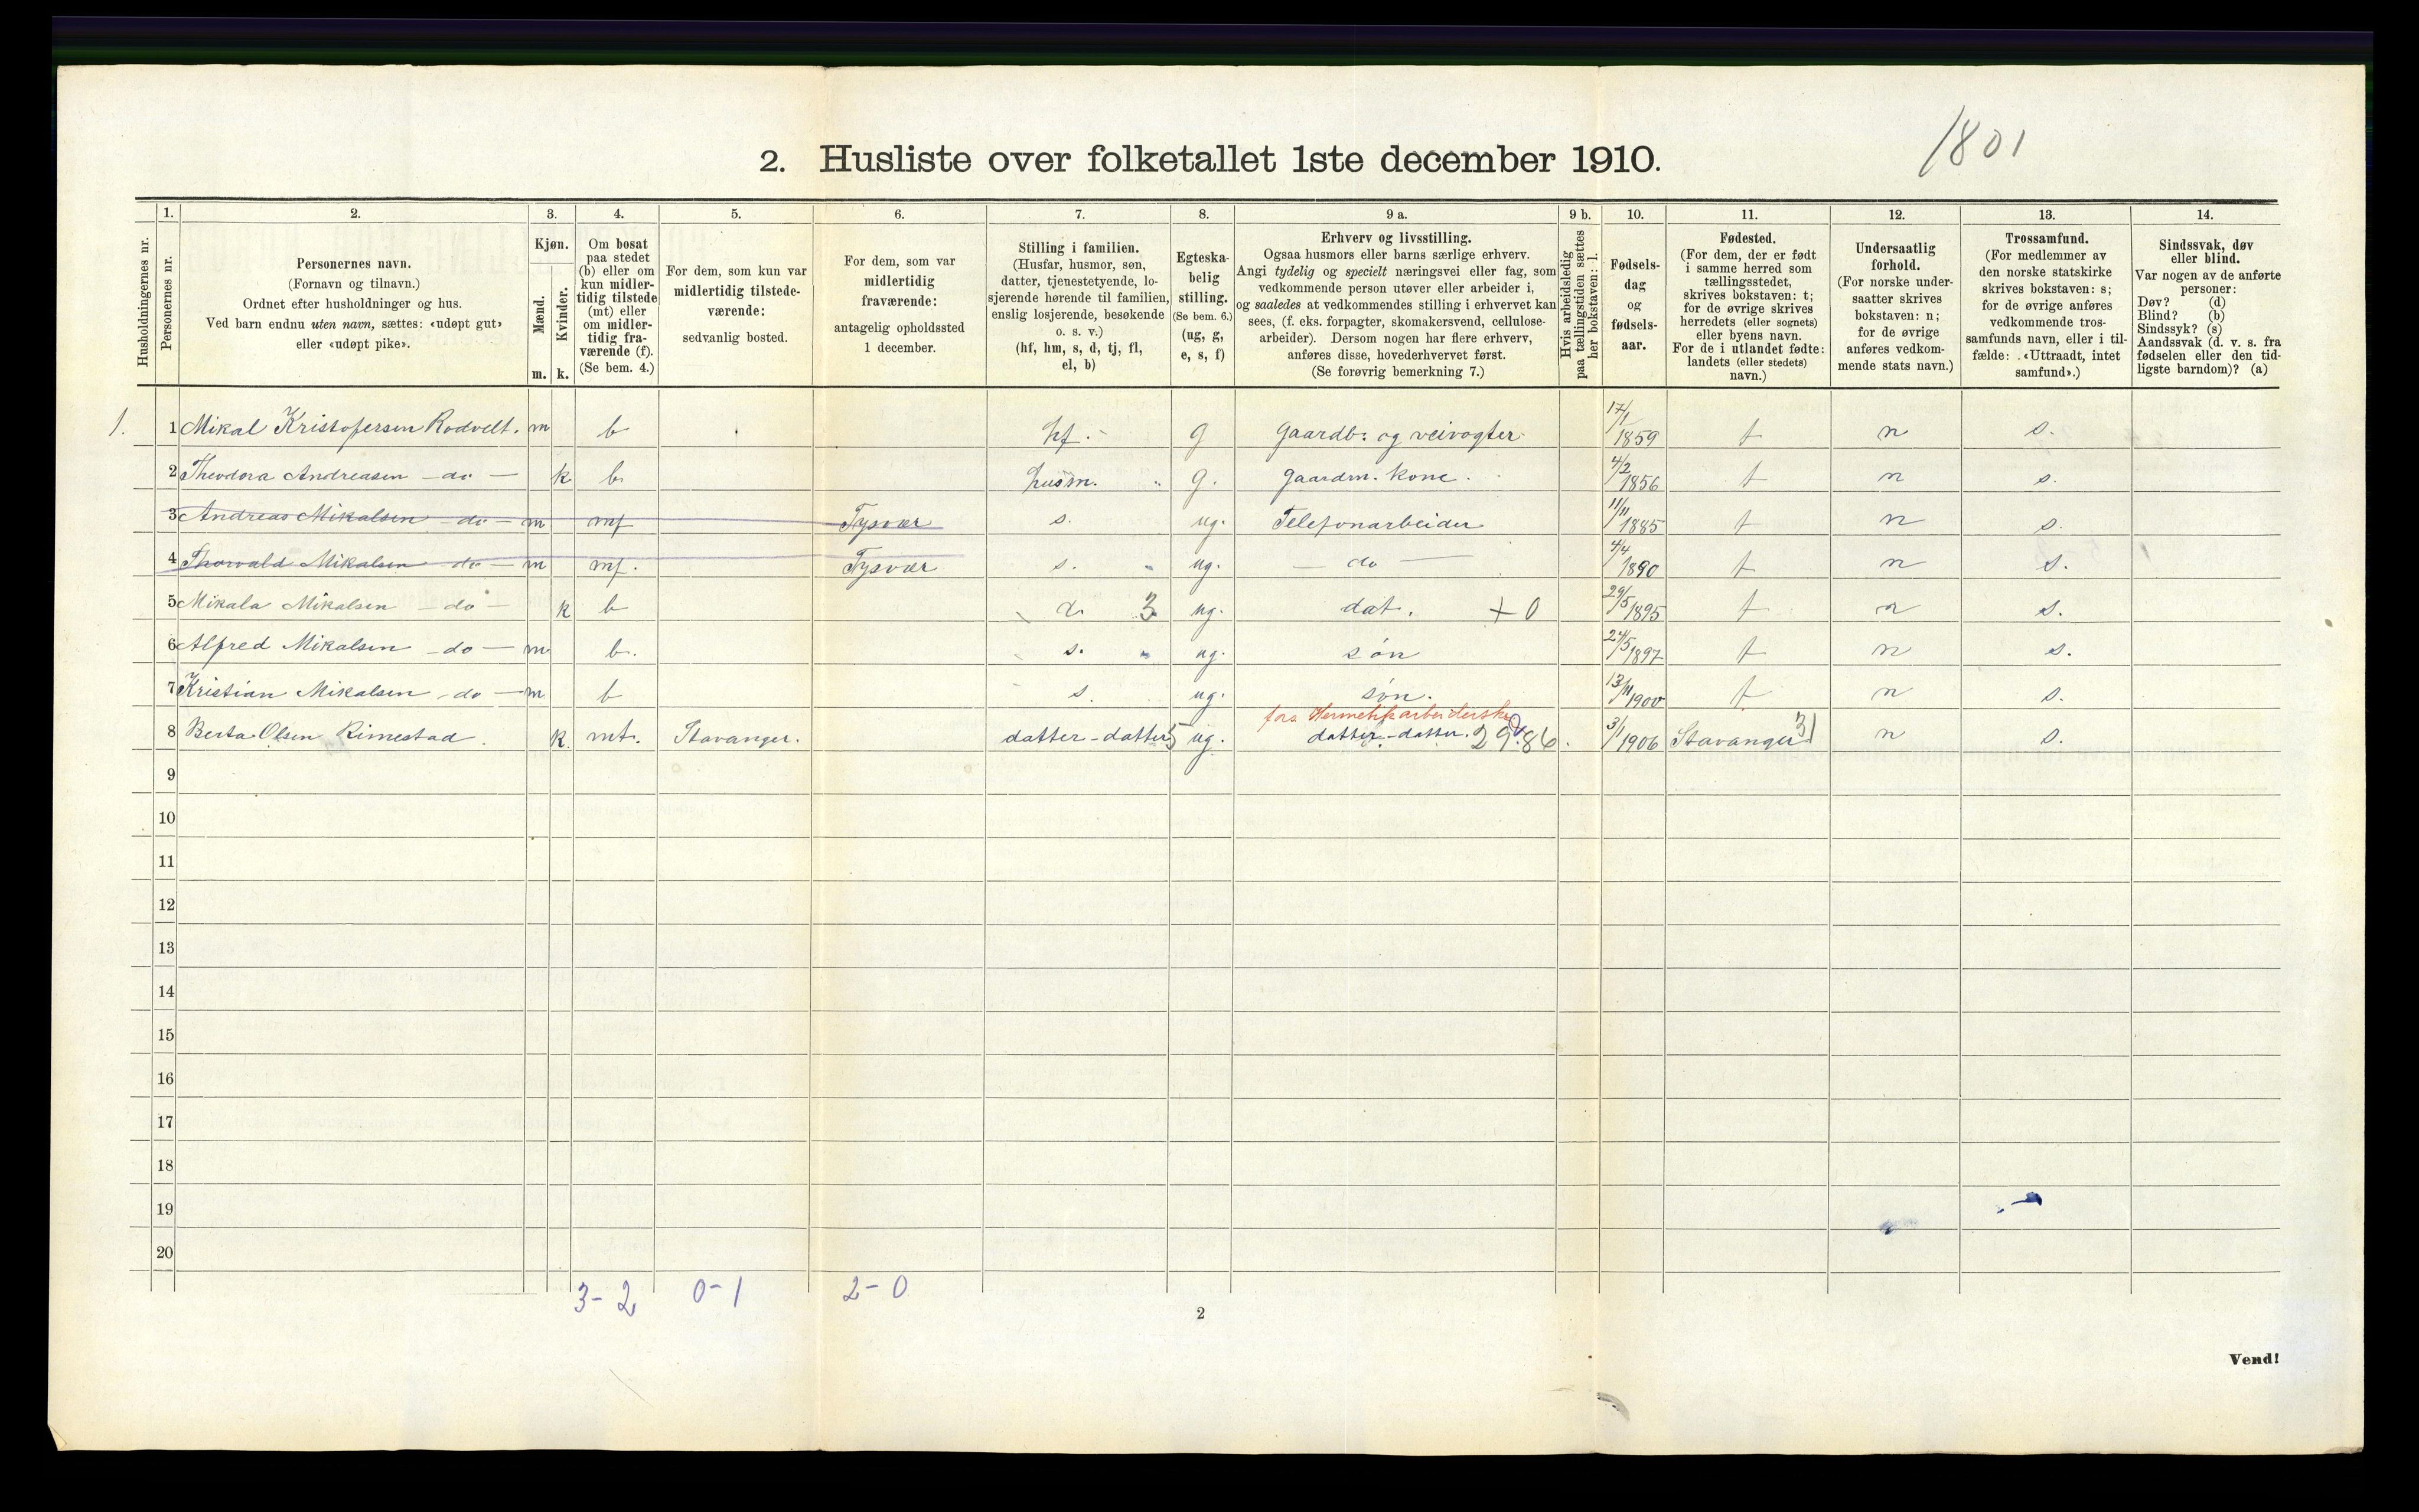 1801
2. Husliste over folketallet 1ste december 1910.
Husholdningernes nr.
1.
Personernes nr.
2.
Personernes navn.
(Fornavn og tilnavn.)
Ordnet efter husholdninger og hus.
Ved barn endnu uten navn, sættes: «udøpt gut»
eller «udøpt pike».
3.
Kjøn.
Mænd.
Kvinder.
m. k.
4.
Om bosat
paa stedet
(b) eller om
kun midler-
tidig tilstede
(mt) eller
om midler-
tidig fra-
værende (f).
(Se bem. 4.)
5.
For dem, som kun var
midlertidig tilstede-
værende:
sedvanlig bosted.
6.
For dem, som var
midlertidig
fraværende:
antagelig opholdssted
1 december.
7.
Stilling i familien.
(Husfar, husmor, søn,
datter, tjenestetyende, lo-
sjerende hørende til familien,
enslig losjerende, besøkende
o. s. v.)
(hf, hm, s, d, tj, fl,
el, b)
8.
Egteska-
belig
stilling.
(Se bem. 6.)
(ug, g,
e, s, f)
9 a.
Erhverv og livsstilling.
Ogsaa husmors eller barns særlige erhverv.
Angi tydelig og specielt næringsvei eller fag, som
vedkommende person utøver eller arbeider i,
og saaledes at vedkommendes stilling i erhvervet kan
sees, (f. eks. forpagter, skomakersvend, cellulose-
arbeider). Dersom nogen har flere erhverv,
anføres disse, hovederhvervet først.
(Se forøvrig bemerkning 7.)
9 b.
Hvis arbeidsledig
paa tællingstiden sættes
her bokstaven: l.
10.
Fødsels-
dag
og
fødsels-
aar.
11.
Fødested.
(For dem, der er født
i samme herred som
tællingsstedet,
skrives bokstaven: t;
for de øvrige skrives
herredets (eller sognets)
eller byens navn.
For de i utlandet fødte:
landets (eller stedets)
navn.)
12.
Undersaatlig
forhold.
(For norske under-
saatter skrives
bokstaven: n;
for de øvrige
anføres vedkom-
mende stats navn.)
13.
Trossamfund.
(For medlemmer av
den norske statskirke
skrives bokstaven: s;
for de øvrige anføres
vedkommende tros-
samfunds navn, eller i til-
fælde: «Uttraadt, intet
samfund».)
14.
Sindssvak, døv
eller blind.
Var nogen av de anførte
personer:
Døv? (d)
Blind? (b)
Sindssyk? (s)
Aandssvak (d. v. s. fra
fødselen eller den tid-
ligste barndom)? (a)
1. 1 Mikal Kristofersen Rodvelt. m b hf. g gaardb: og veivogter 17/1 1859 t n s.
2 Theodora Andreasen - do - k b. husm. g. gaardm. kone. 4/2 1856 t n s.
3 Andreas Mikalsen - do - m mf Tysvær s. ug. Telefonarbeider 11/11 1885 t n s.
4 Thorvald Mikalsen - do - m mf. Tysvær s. ug. - do - 4/4 1890 t n s.
5 Mikala Mikalsen - do - k b d. 3 ug. dat. + 0 29/5 1895 t n s.
6 Alfred Mikalsen - do - m b. s. ug. søn 24/5 1897 t n s.
7 Kristian Mikalsen - do - m b s. ug. søn. 13/11 1900 t n s.
fors. Hermetikarbeiderske
8 Berta Olsen Rimestad. k. mt. Stavanger. datter-datter 5 ug. datter-datter. 29.86. 3/1 1906 Stavanger 31 n s.
9
10
11
12
13
14
15
16
17
18
19
20
3 - 2 0 - 1 2 - 0
2
Vend!